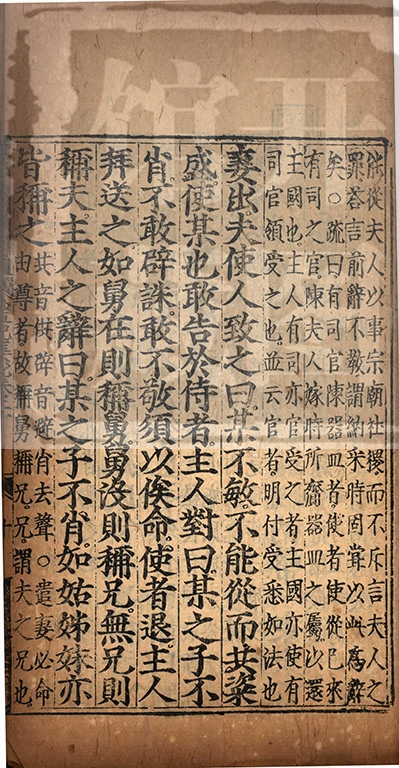 能從夫人以事宗廟社稷而不斥言夫人之
罪荅言前辭不敎謂納采時固嘗以此為辭
矣○疏曰有司官陳器皿者使者使從已來
有司之官陳夫人嫁時所齎器皿之屬以還
主國也主人有司亦官受之者主國亦使有
司官領受之也並云官者明付受悉如法也
妻出夫使人致之曰某不敏不能從而共粢
盛使某也敢告於侍者主人對曰某之子不
肖不敢辟誅敢不敬須以俟命使者退主人
拜送之如舅在則稱舅舅沒則稱兄無兄則
稱夫主人之辭曰某之子不肖如姑姊妹亦
皆稱之共音恭辟音避肖去聲○遣妻必命
由尊者故稱舅稱兄兄謂夫之兄也